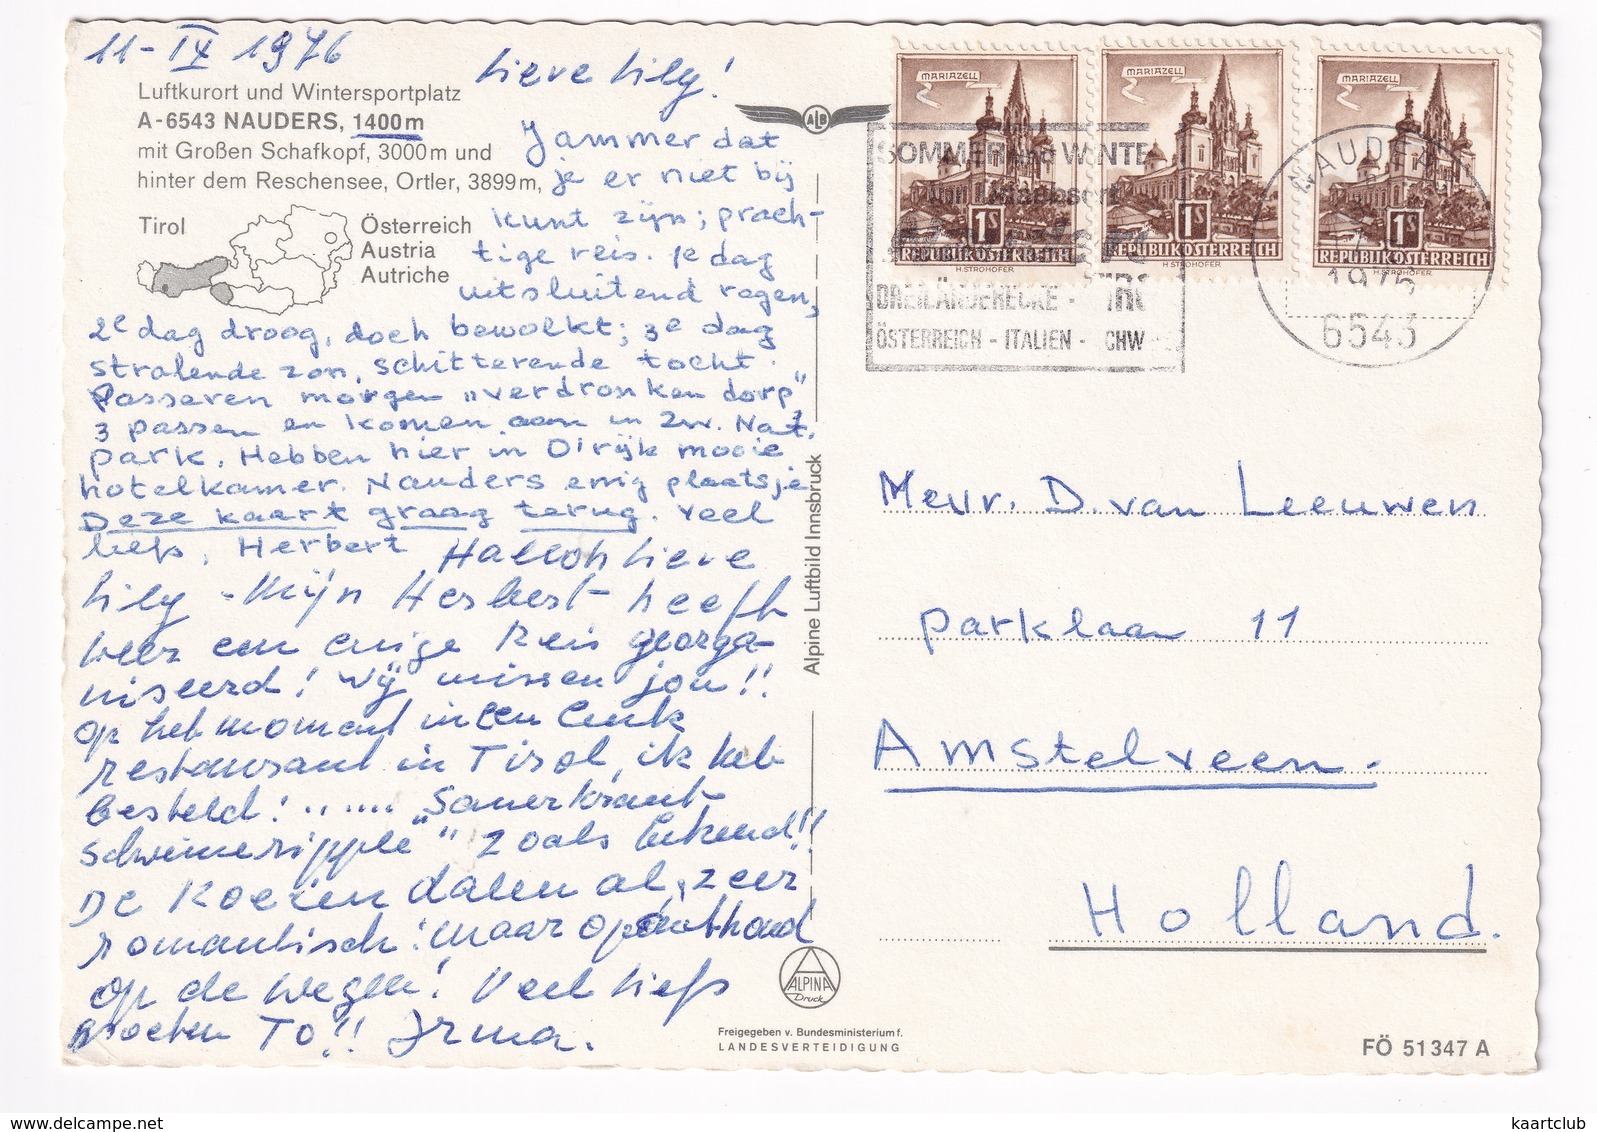 11-IX 1976
Lieve Lily!
Luftkurort und Wintersportplatz
A-6543 NAUDERS, 1400m
mit Großen Schafkopf, 3000m und
hinter dem Reschensee, Ortler, 3899m,
Tirol
Österreich
Austria
Autriche
Jammer dat
je er niet bij
kunt zijn; prach-
tige reis. 1e dag
uitsluitend regen,
2e dag droog, doch bewolkt; 3e dag
stralende zon, schitterende tocht.
Passeren morgen "verdronken dorp"
3 passen en komen aan in Zw. Nat.
park. Hebben hier in O'rijk mooie
hotelkamer. Nauders enig plaatsje
Deze kaart graag terug. Veel
liefs, Herbert
Halloh lieve
Lily - Mijn Herbert heeft
weer een enige reis georga-
niseerd! Wij missen jou!!
Op het moment in een leuk
restaurant in Tirol, ik heb
besteld! ...... "Sauerkraut-
schweineripple" zoals bekend!!
De Koeien dalen al, zeer
romantisch! maar oponthoud
op de wegen! Veel liefs
groeten To!! Irma.
ALB
Alpine Luftbild Innsbruck
ALPINA
Druck
Freigegeben v. Bundesministerium f.
LANDESVERTEIDIGUNG
MARIAZELL
1S
REPUBLIK ÖSTERREICH
H.STROHOFER
MARIAZELL
1S
REPUBLIK ÖSTERREICH
H.STROHOFER
MARIAZELL
1S
REPUBLIK ÖSTERREICH
H.STROHOFER
SOMMER und WINTE
DREILÄNDERECKE - TIRO
ÖSTERREICH - ITALIEN - CHW
NAUDER
1976
6543
Mevr. D. van Leeuwen
Parklaan 11
Amstelveen.
Holland.
FÖ 51347 A
kaartclub